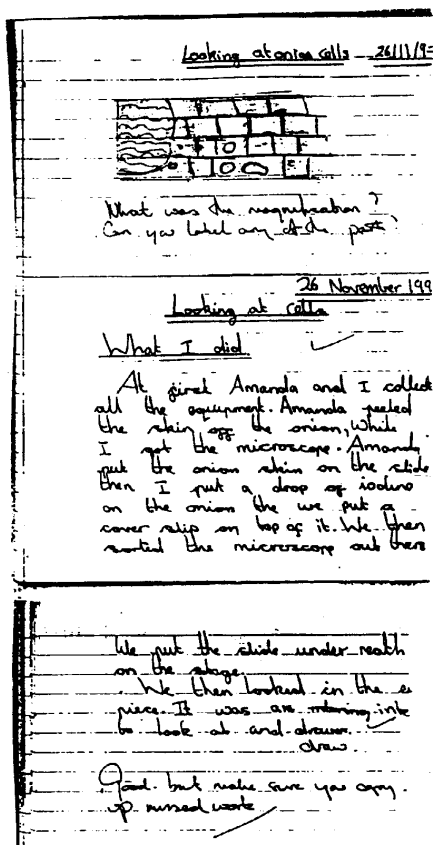 Looking at onion cells 26/11/9
What was the magnification?
Can you label any of the parts?
26 November 199
Looking at cells
What I did
At first Amanda and I collect
all the equipment. Amanda peeled
the skin off the onion, while
I got the microscope. Amanda
put the onion skin on the slide
then I put a drop of iodine
on the onion the we put a
cover slip on top of it. We then
sorted the microscope out there
We put the slide under
on the stage
. We then looked in the e
piece. It was an inte
to look at and
draw
Good. but make sure you copy
up missed work